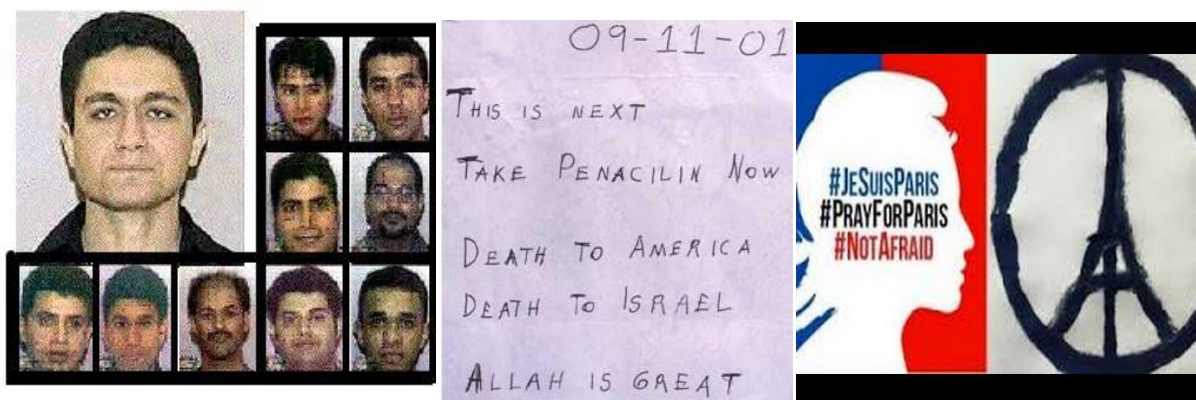 09-11-01
THIS IS NEXT
TAKE PENACILIN NOW
DEATH TO AMERICA
DEATH TO ISRAEL
ALLAH IS GREAT
#JESUISPARIS
#PRAYFORPARIS
#NOTAFRAID